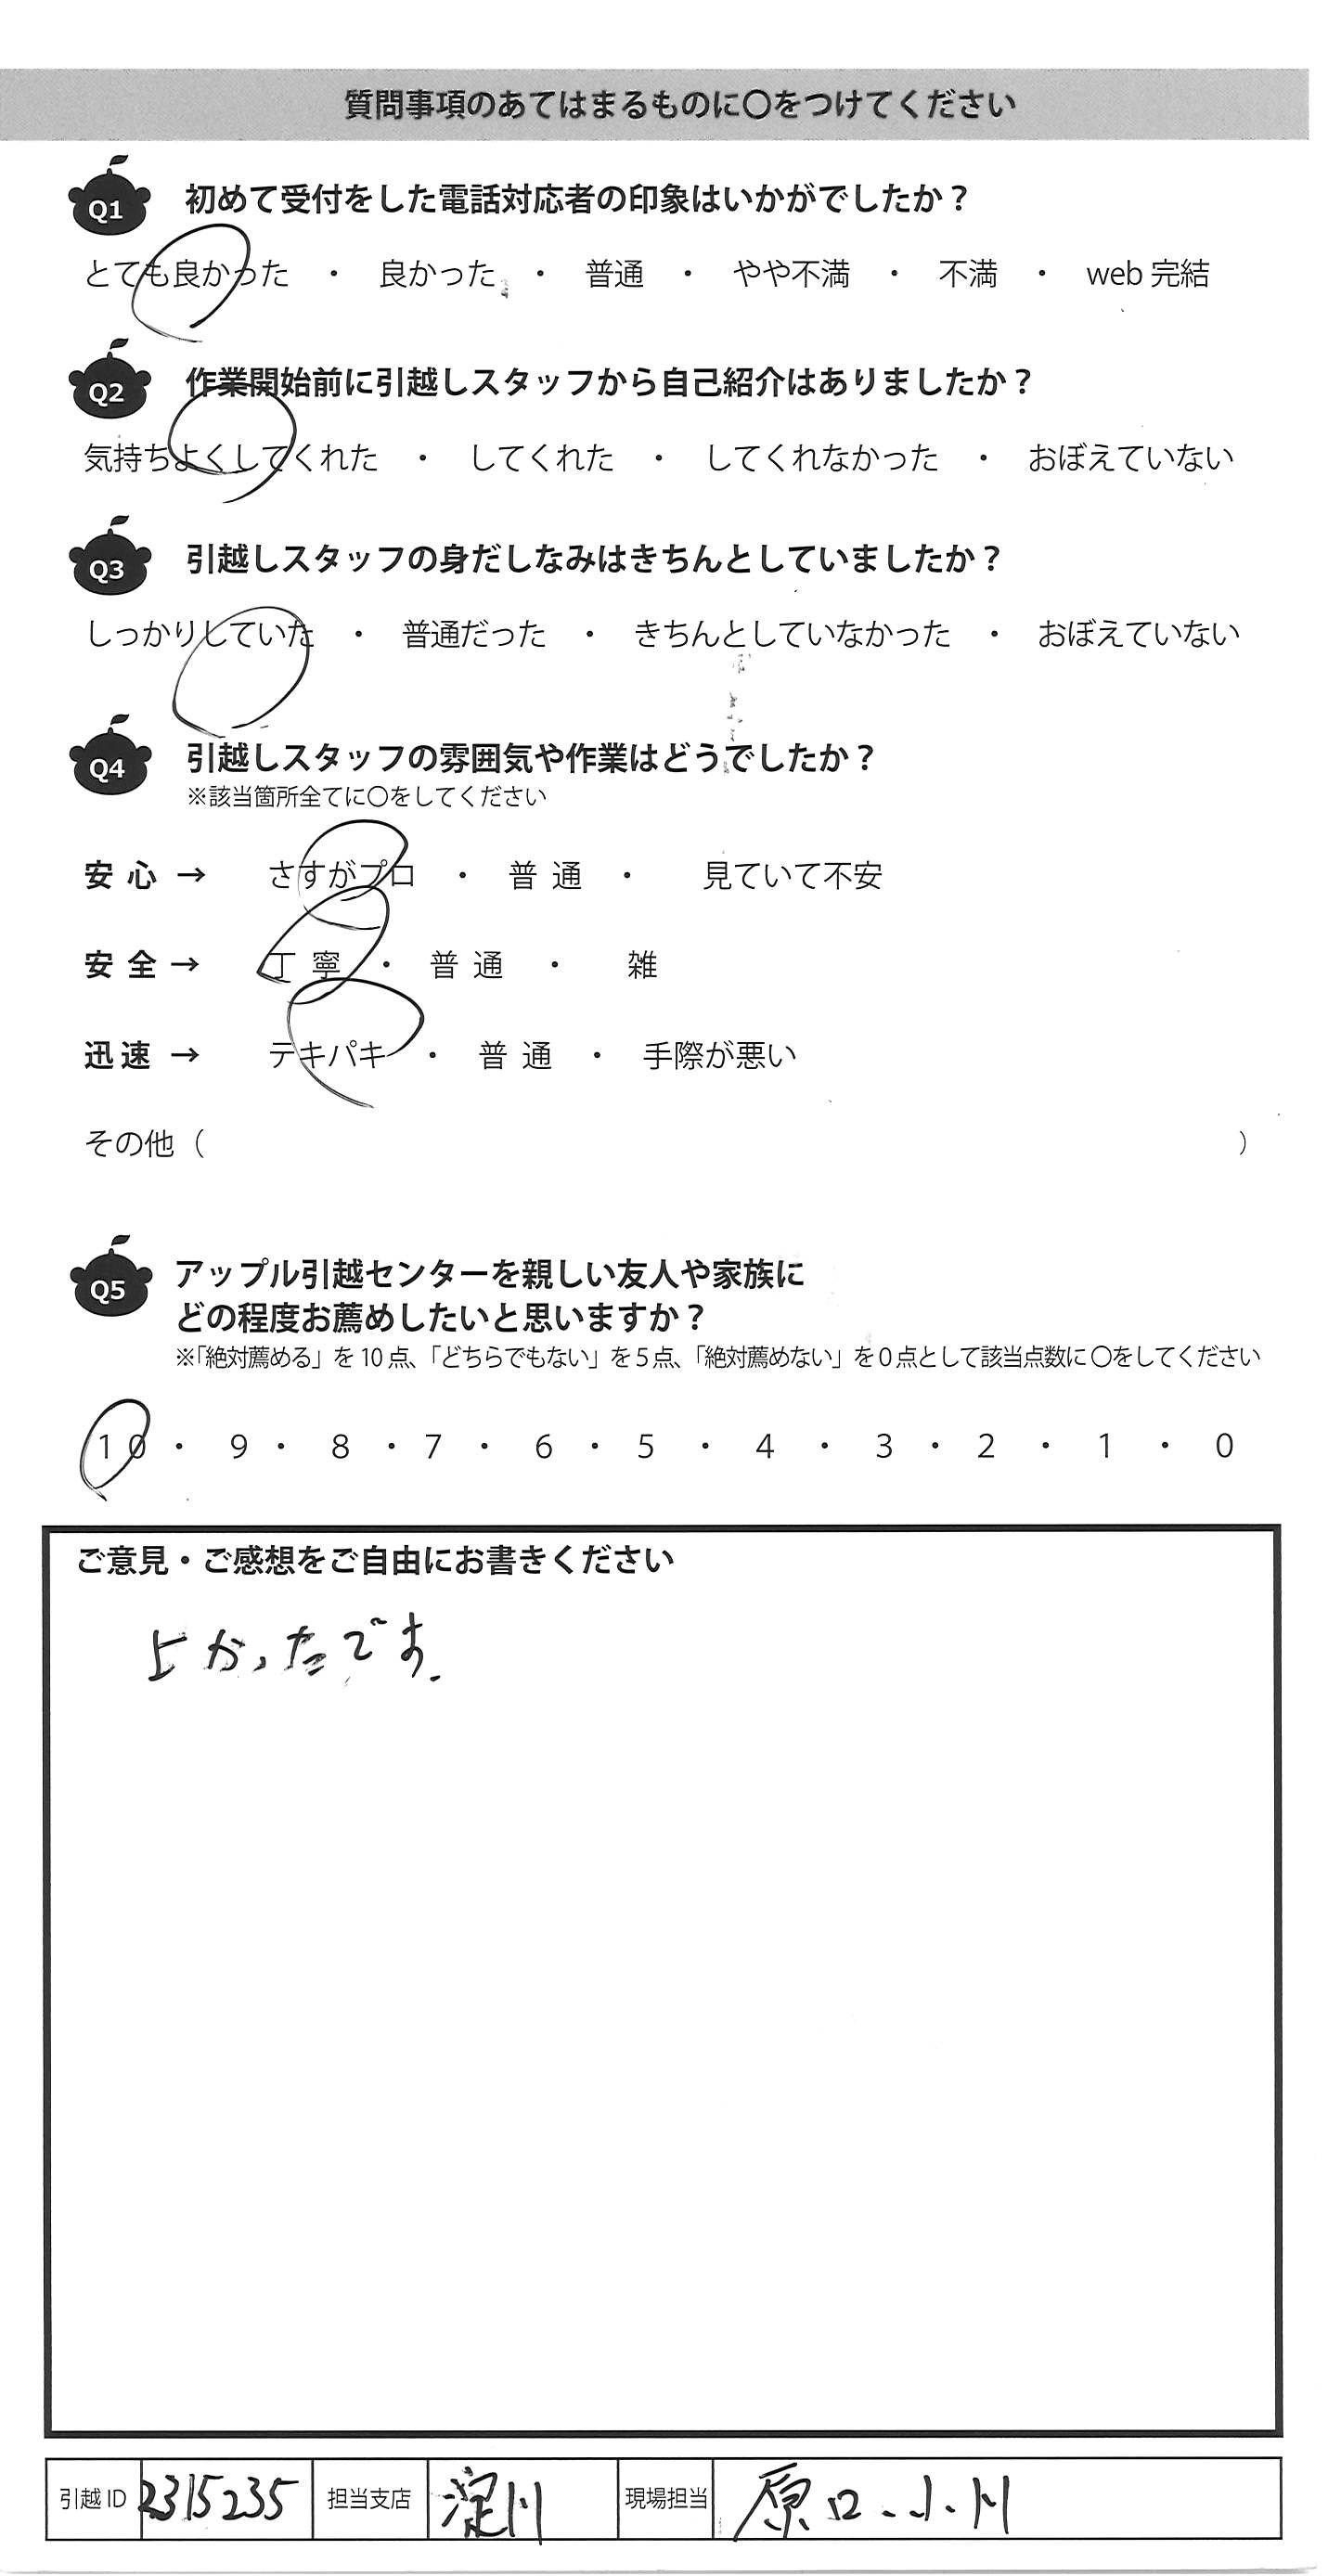 質問事項のあてはまるものに〇をつけてください
Q1 初めて受付をした電話対応者の印象はいかがでしたか？
とても良かった ・ 良かった ・ 普通 ・ やや不満 ・ 不満 ・ web 完結
Q2 作業開始前に引越しスタッフから自己紹介はありましたか？
気持ちよくしてくれた ・ してくれた ・ してくれなかった ・ おぼえていない
Q3 引越しスタッフの身だしなみはきちんとしていましたか？
しっかりしていた ・ 普通だった ・ きちんとしていなかった ・ おぼえていない
Q4 引越しスタッフの雰囲気や作業はどうでしたか？
※該当箇所全てに〇をしてください
安 心 → さすがプロ ・ 普 通 ・ 見ていて不安
安 全 → 丁 寧 ・ 普 通 ・ 雑
迅 速 → テキパキ ・ 普 通 ・ 手際が悪い
その他（ ）
Q5 アップル引越センターを親しい友人や家族に
どの程度お薦めしたいと思いますか？
※「絶対薦める」を 10 点、「どちらでもない」を 5 点、「絶対薦めない」を 0 点として該当点数に 〇をしてください
10 ・ 9 ・ 8 ・ 7 ・ 6 ・ 5 ・ 4 ・ 3 ・ 2 ・ 1 ・ 0
ご意見・ご感想をご自由にお書きください
よかったです.
引越 ID 2315235 担当支店 淀川 現場担当 原口、小川